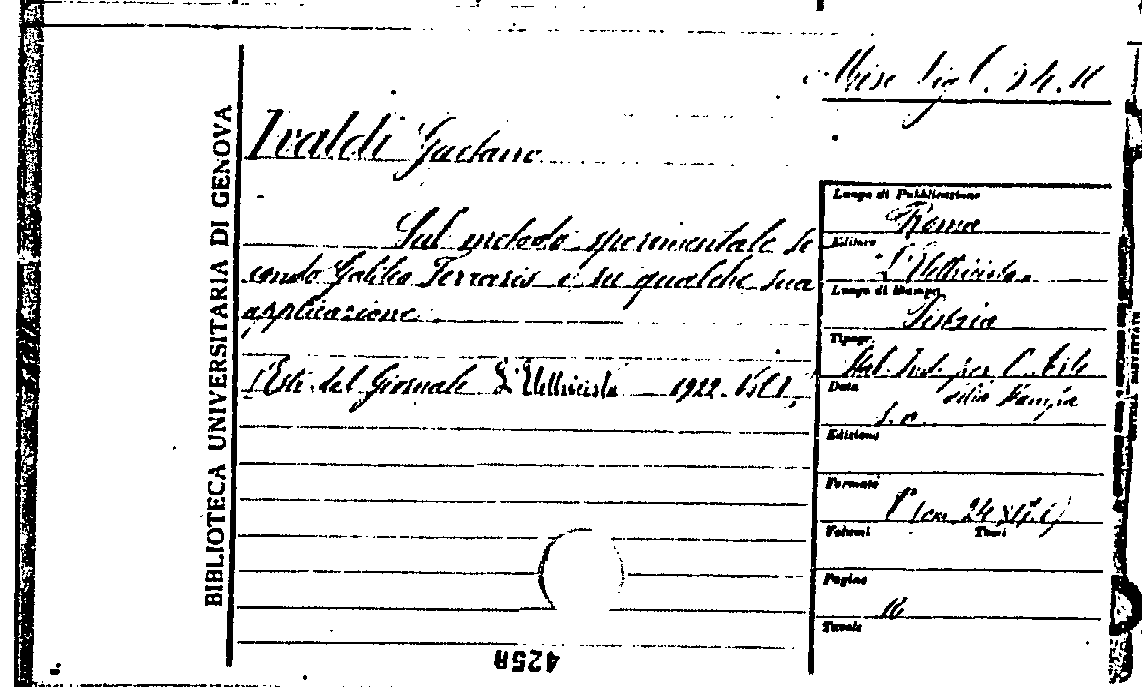 BIBLIOTECA UNIVERSITARIA DI GENOVA
Misc.
Ivaldi Gaetano
Sul metodo sperimentale se
condo Galileo Ferraris e su qualche sua
applicazione.
Estr. del Giornale L'Elettricista 1922.
Luogo di Pubblicazione
Roma
Editore
L'Elettricista.
Luogo di Stampa
Pistoia
Tipogr.
Stab. Ind. per l'Arte
della Stampa
Data
s.a.
Edizione
Formato
8° (cm. 24
Volumi Tomi
Pagine
16
Tavole
4258